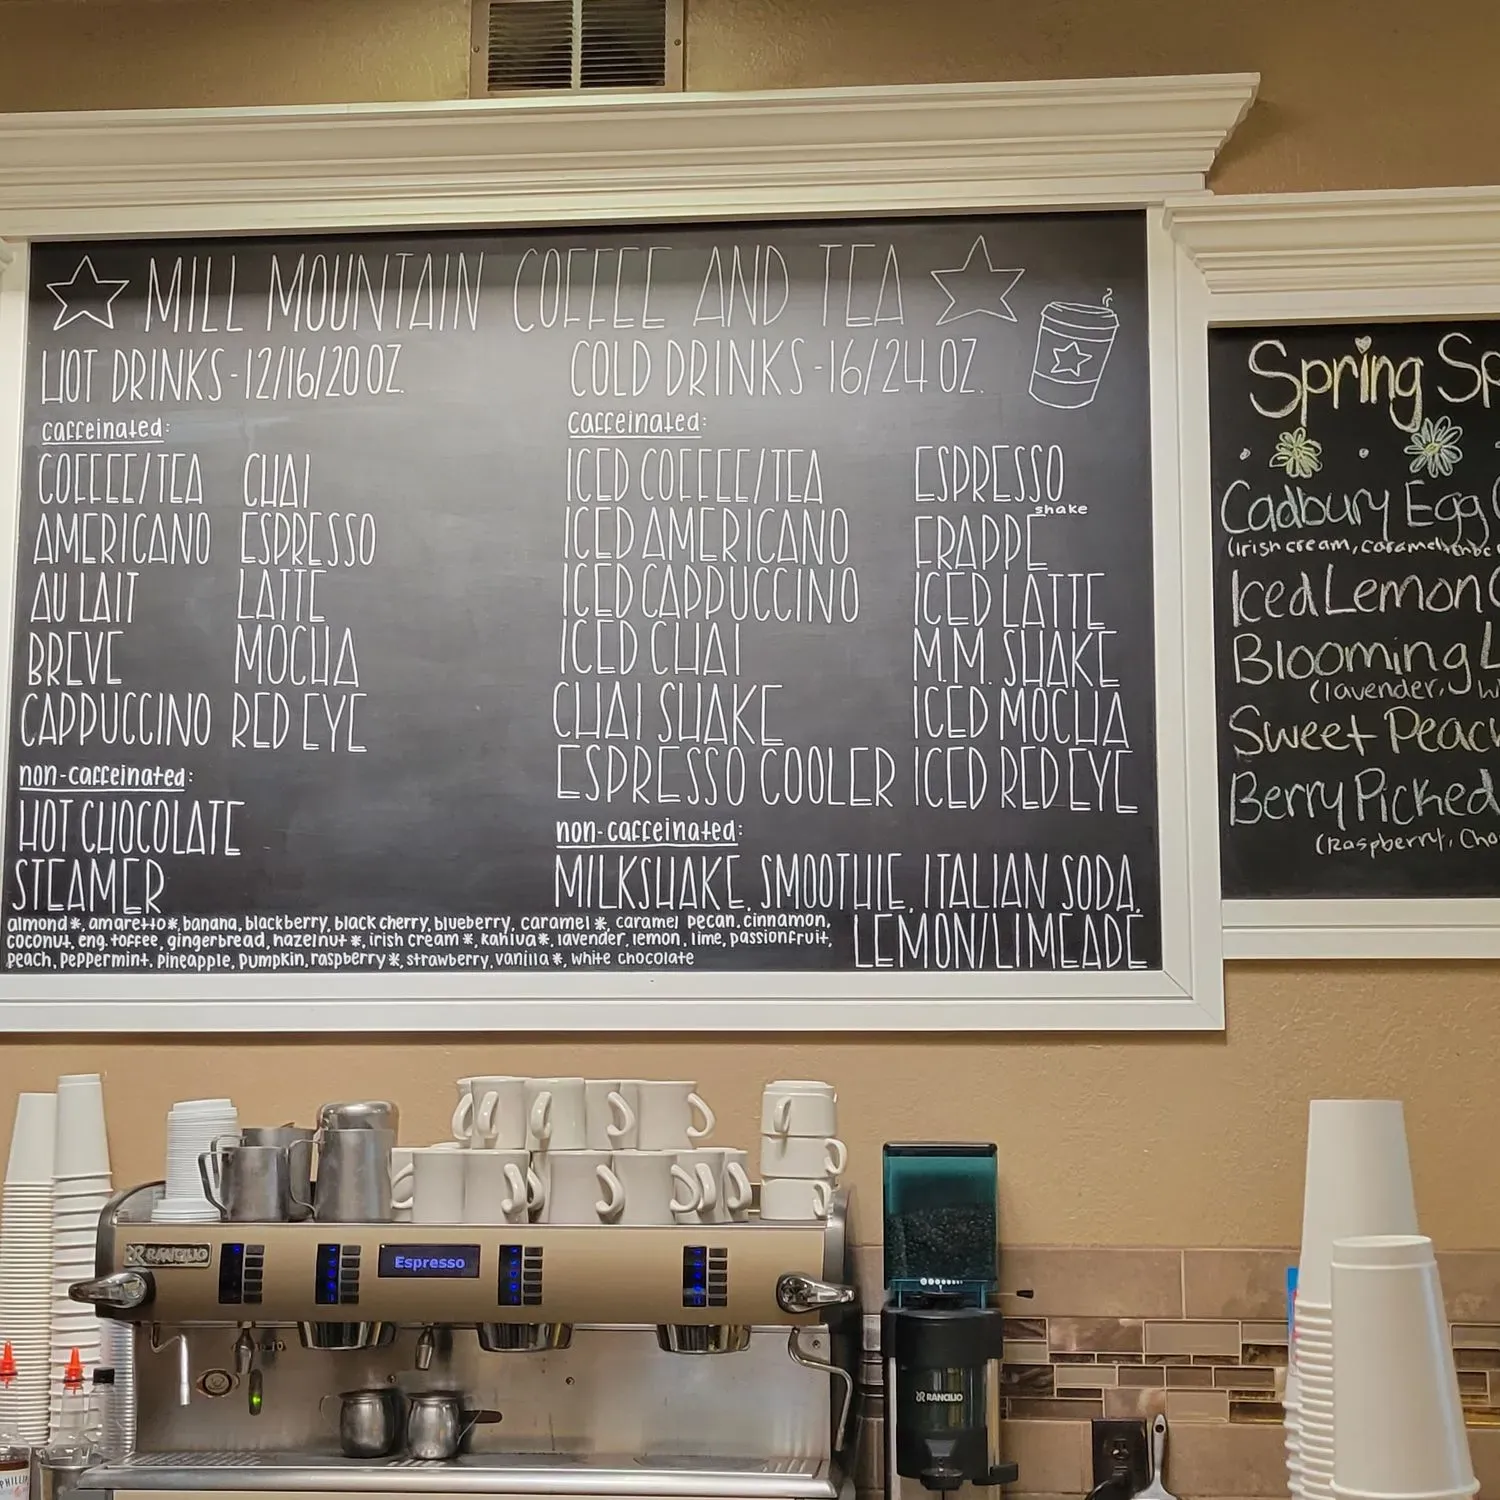 MILL MOUNTAIN COFFEE AND TEA
HOT DRINKS - 12/16/20 OZ.
caffeinated:
COFFEE/TEA
AMERICANO
AU LAIT
BREVE
CAPPUCCINO
CHAI
ESPRESSO
LATTE
MOCHA
RED EYE
non-caffeinated:
HOT CHOCOLATE
STEAMER
almond*, amaretto*, banana, blackberry, black cherry, blueberry, caramel*, caramel pecan, cinnamon,
coconut, eng. toffee, gingerbread, hazelnut*, irish cream*, kahlua*, lavender, lemon, lime, passionfruit,
peach, peppermint, pineapple, pumpkin, raspberry*, strawberry, vanilla*, white chocolate
COLD DRINKS - 16/24 OZ.
caffeinated:
ICED COFFEE/TEA
ICED AMERICANO
ICED CAPPUCCINO
ICED CHAI
CHAI SHAKE
ESPRESSO COOLER
ESPRESSO
shake
FRAPPE
ICED LATTE
M.M. SHAKE
ICED MOCHA
ICED RED EYE
non-caffeinated:
MILKSHAKE, SMOOTHIE, ITALIAN SODA,
LEMON/LIMEADE
Spring Sp
Cadbury Egg
(Irish cream, caramel,
Iced Lemon
Blooming L
(lavender, w
Sweet Peach
Berry Picked
(Raspberry, Cho
RANCILIO
Espresso
RANCILIO